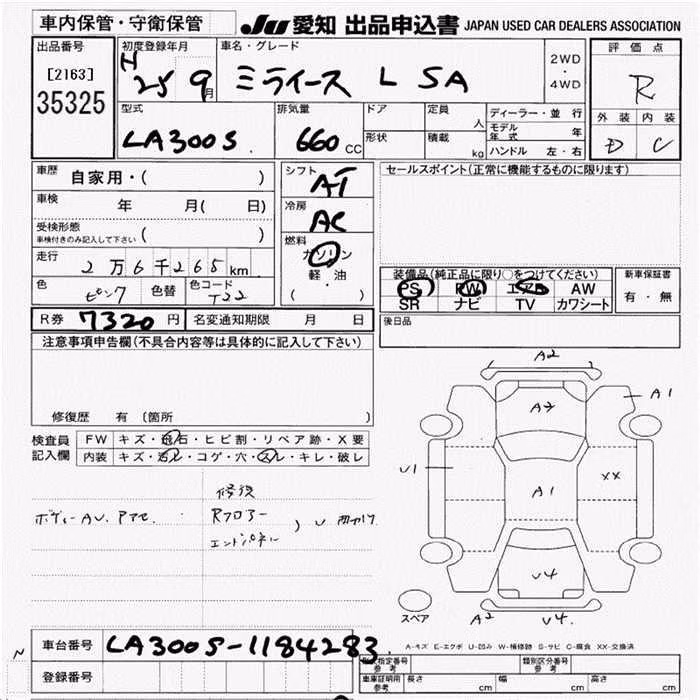 車内保管・守衛保管
JU 愛知 出品申込書 JAPAN USED CAR DEALERS ASSOCIATION
出品番号
[2163]
35325
初度登録年月
H 25 9月
車名・グレード
ミライース L SA
2WD
・
4WD
評価点
R
外装 内装
D C
型式
LA300S.
排気量
660 CC
ドア
形状
定員
人
積載
kg
ディーラー・並行
モデル年式 年
ハンドル 左・右
車歴
自家用・( )
車検
年 月( 日)
受検形態
車検付きのみ記入して下さい ( )
走行
2万6千265km
色
ピンク
色替
色コード
T22
シフト
AT
冷房
AC
燃料
ガソリン
軽・油
( ・ )
セールスポイント(正常に機能するものに限ります)
装備品(純正品に限り○をつけてください)
PS PW エアB AW
SR ナビ TV カワシート
新車保証書
有・無
R券 7320円
名変通知期限 月 日
後日品
注意事項申告欄(不具合内容等は具体的に記入して下さい)
修復歴 有 〔箇所 〕
検査員
記入欄
FW キズ・飛石・ヒビ割・リペア跡・X要
内装 キズ・汚レ・コゲ・穴・スレ・キレ・破レ
ボディーAU.
修復
Rフロアー
エンドパネル
A2
A1
A2
U1
A1
XX
U4
A2
U4.
スペア
A-キズ E-エクボ U-凹み W-補修跡 S-サビ C-腐食 XX-交換済
N
車台番号 LA300S-1184283
登録番号
型式指定番号
参考
類別区分番号
参考
車庫証明用
参考
長さ cm
幅 cm
高さ cm